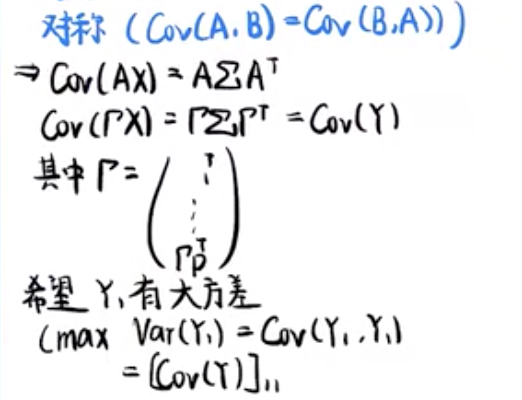 对称 (Cov(A,B)=Cov(B,A)))
⇒ Cov(AX) = AΣA^T
Cov(ΓX) = ΓΣΓ^T = Cov(Y)
其中 Γ = ( ₁^T ⋮ Γp^T )
希望 Y₁ 有大方差
(max Var(Y₁) = Cov(Y₁,Y₁)
= [Cov(Y)]₁₁